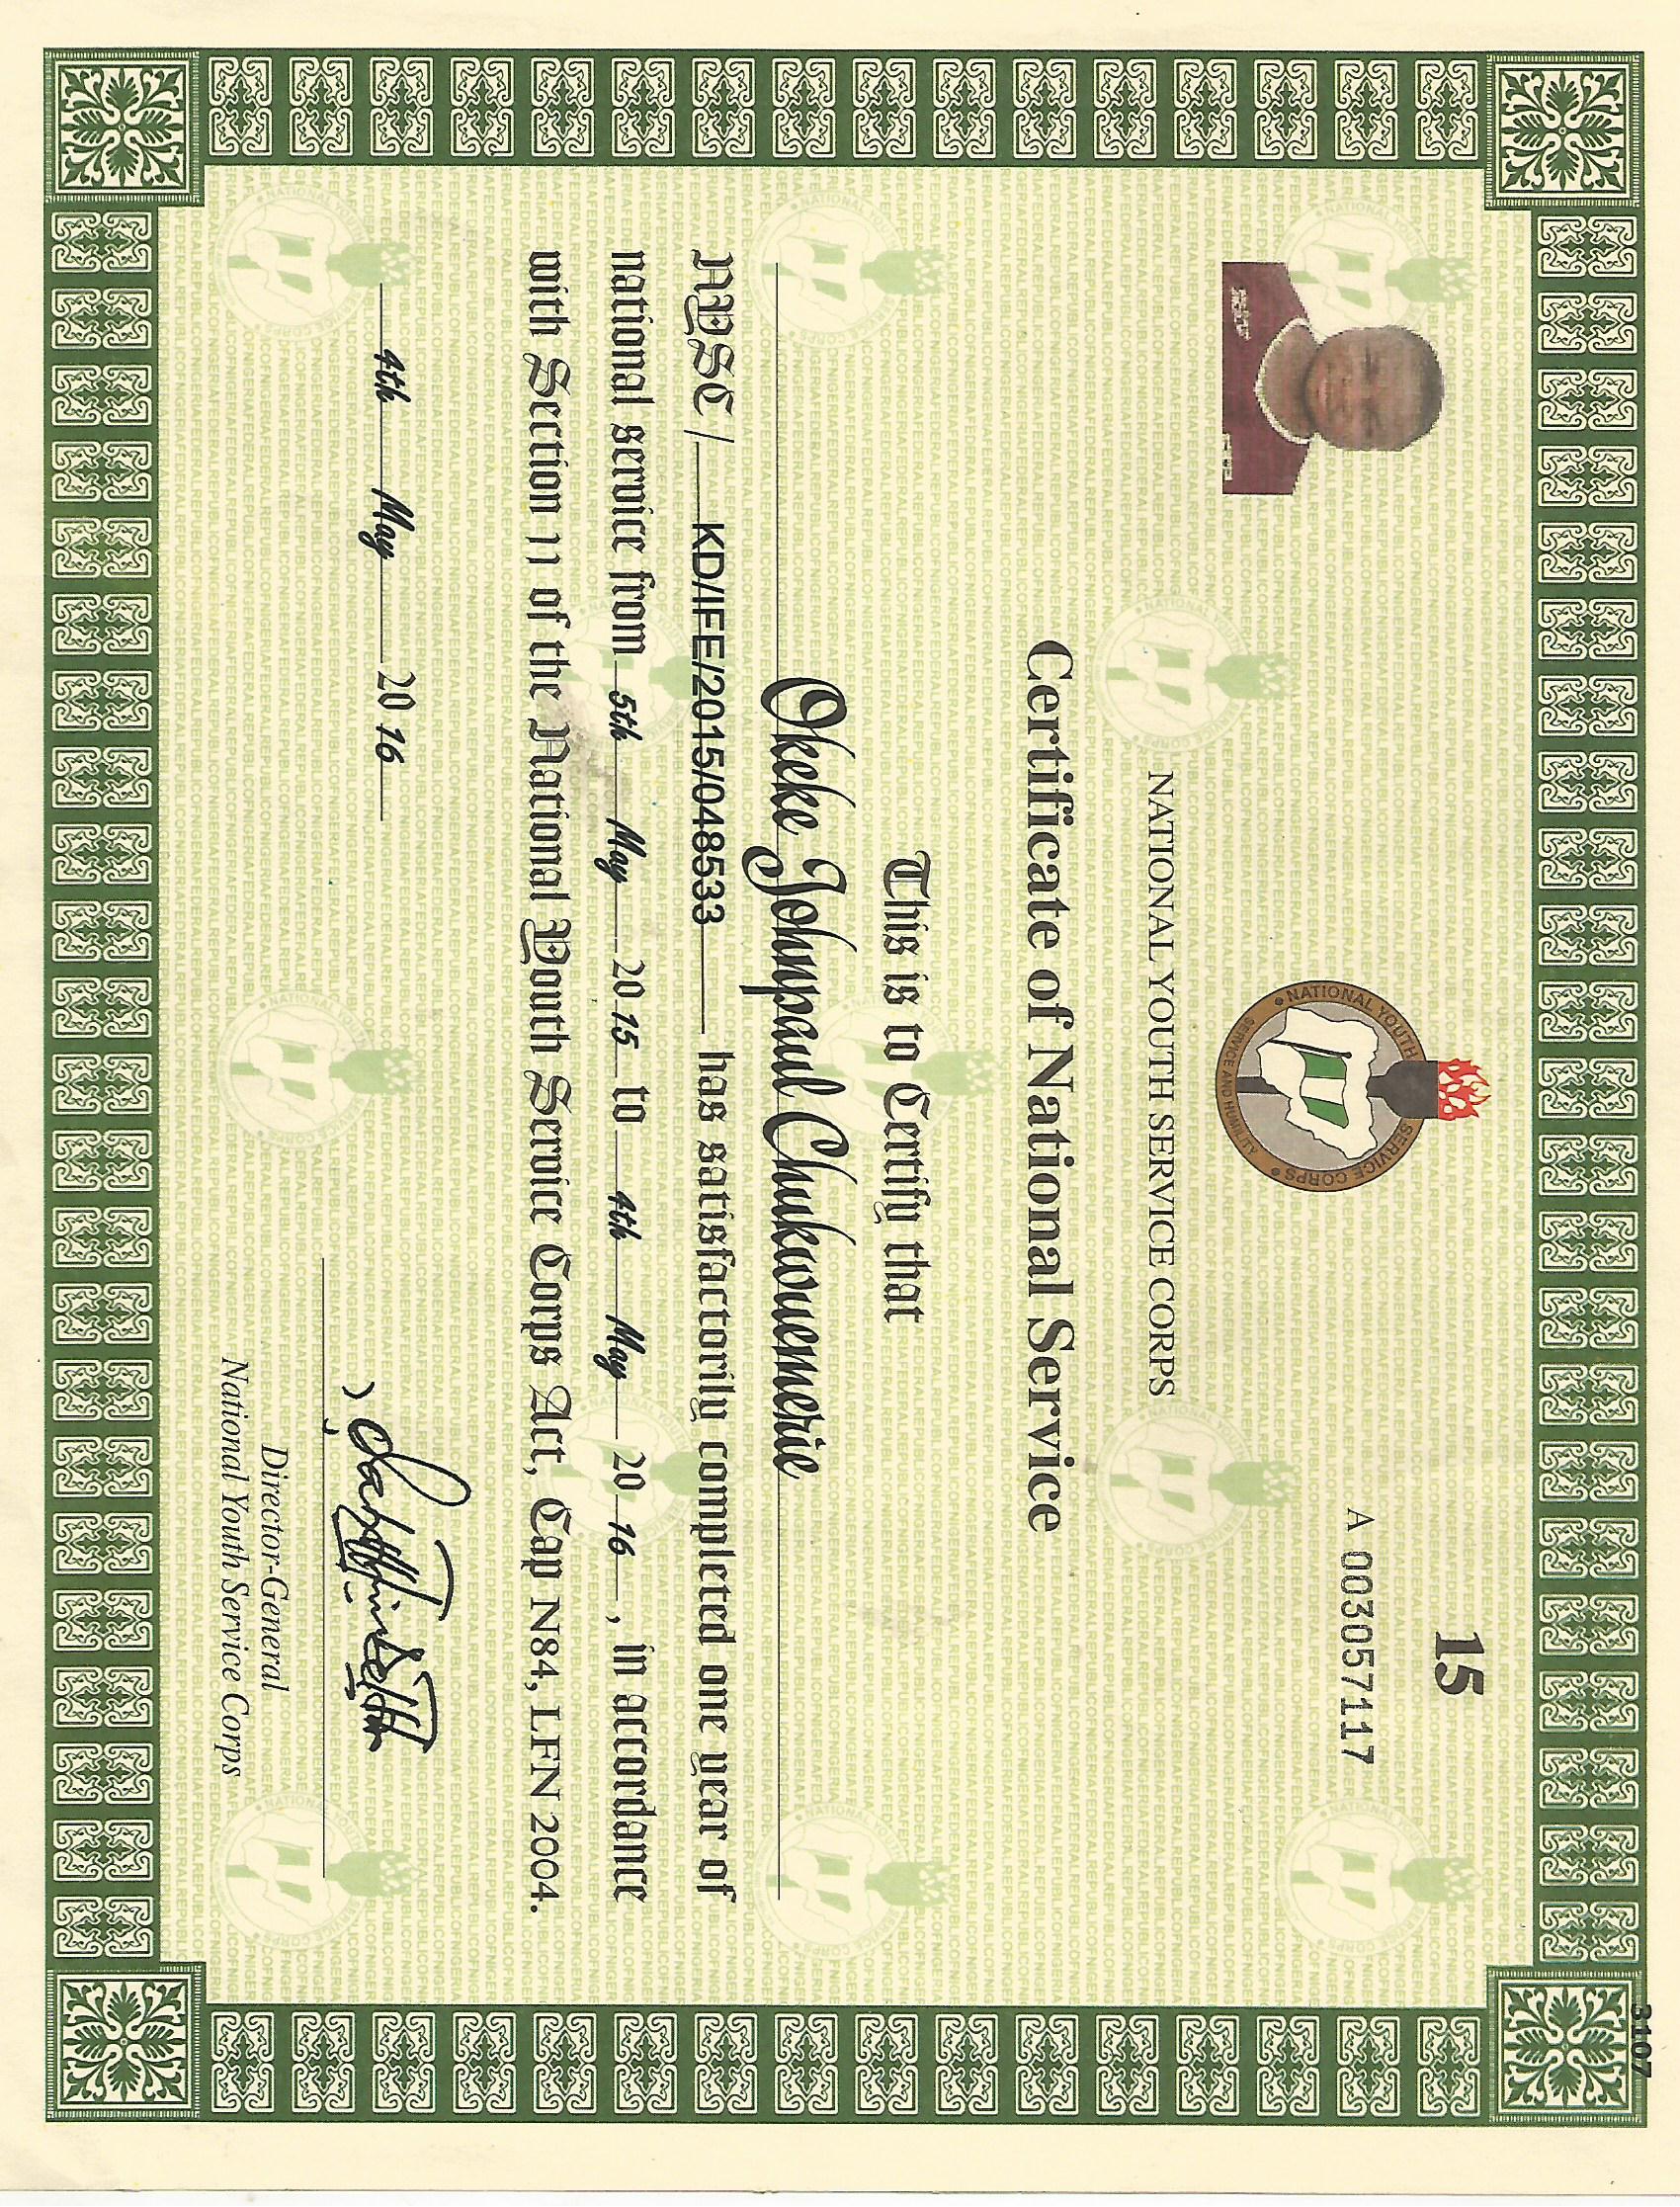 15
A 003057117
NATIONAL YOUTH SERVICE CORPS
SERVICE AND HUMILITY
NATIONAL YOUTH SERVICE CORPS
Certificate of National Service
This is to Certify that
Okeke Johnpaul Chukwuemerie
NYSC / KD/IFE/2015/048533 has satisfactorily completed one year of
national service from 5th May 2015 to 4th May 2016, in accordance
with Section 11 of the National Youth Service Corps Act, Cap N84, LFN 2004.
4th May 2016
Director-General
National Youth Service Corps
3107